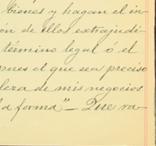 bienes y hagan el in
ón de ellos extrajudi
término legal ó el
ones et que sea preciso
leza de mis negocios
la forma" – Que ra